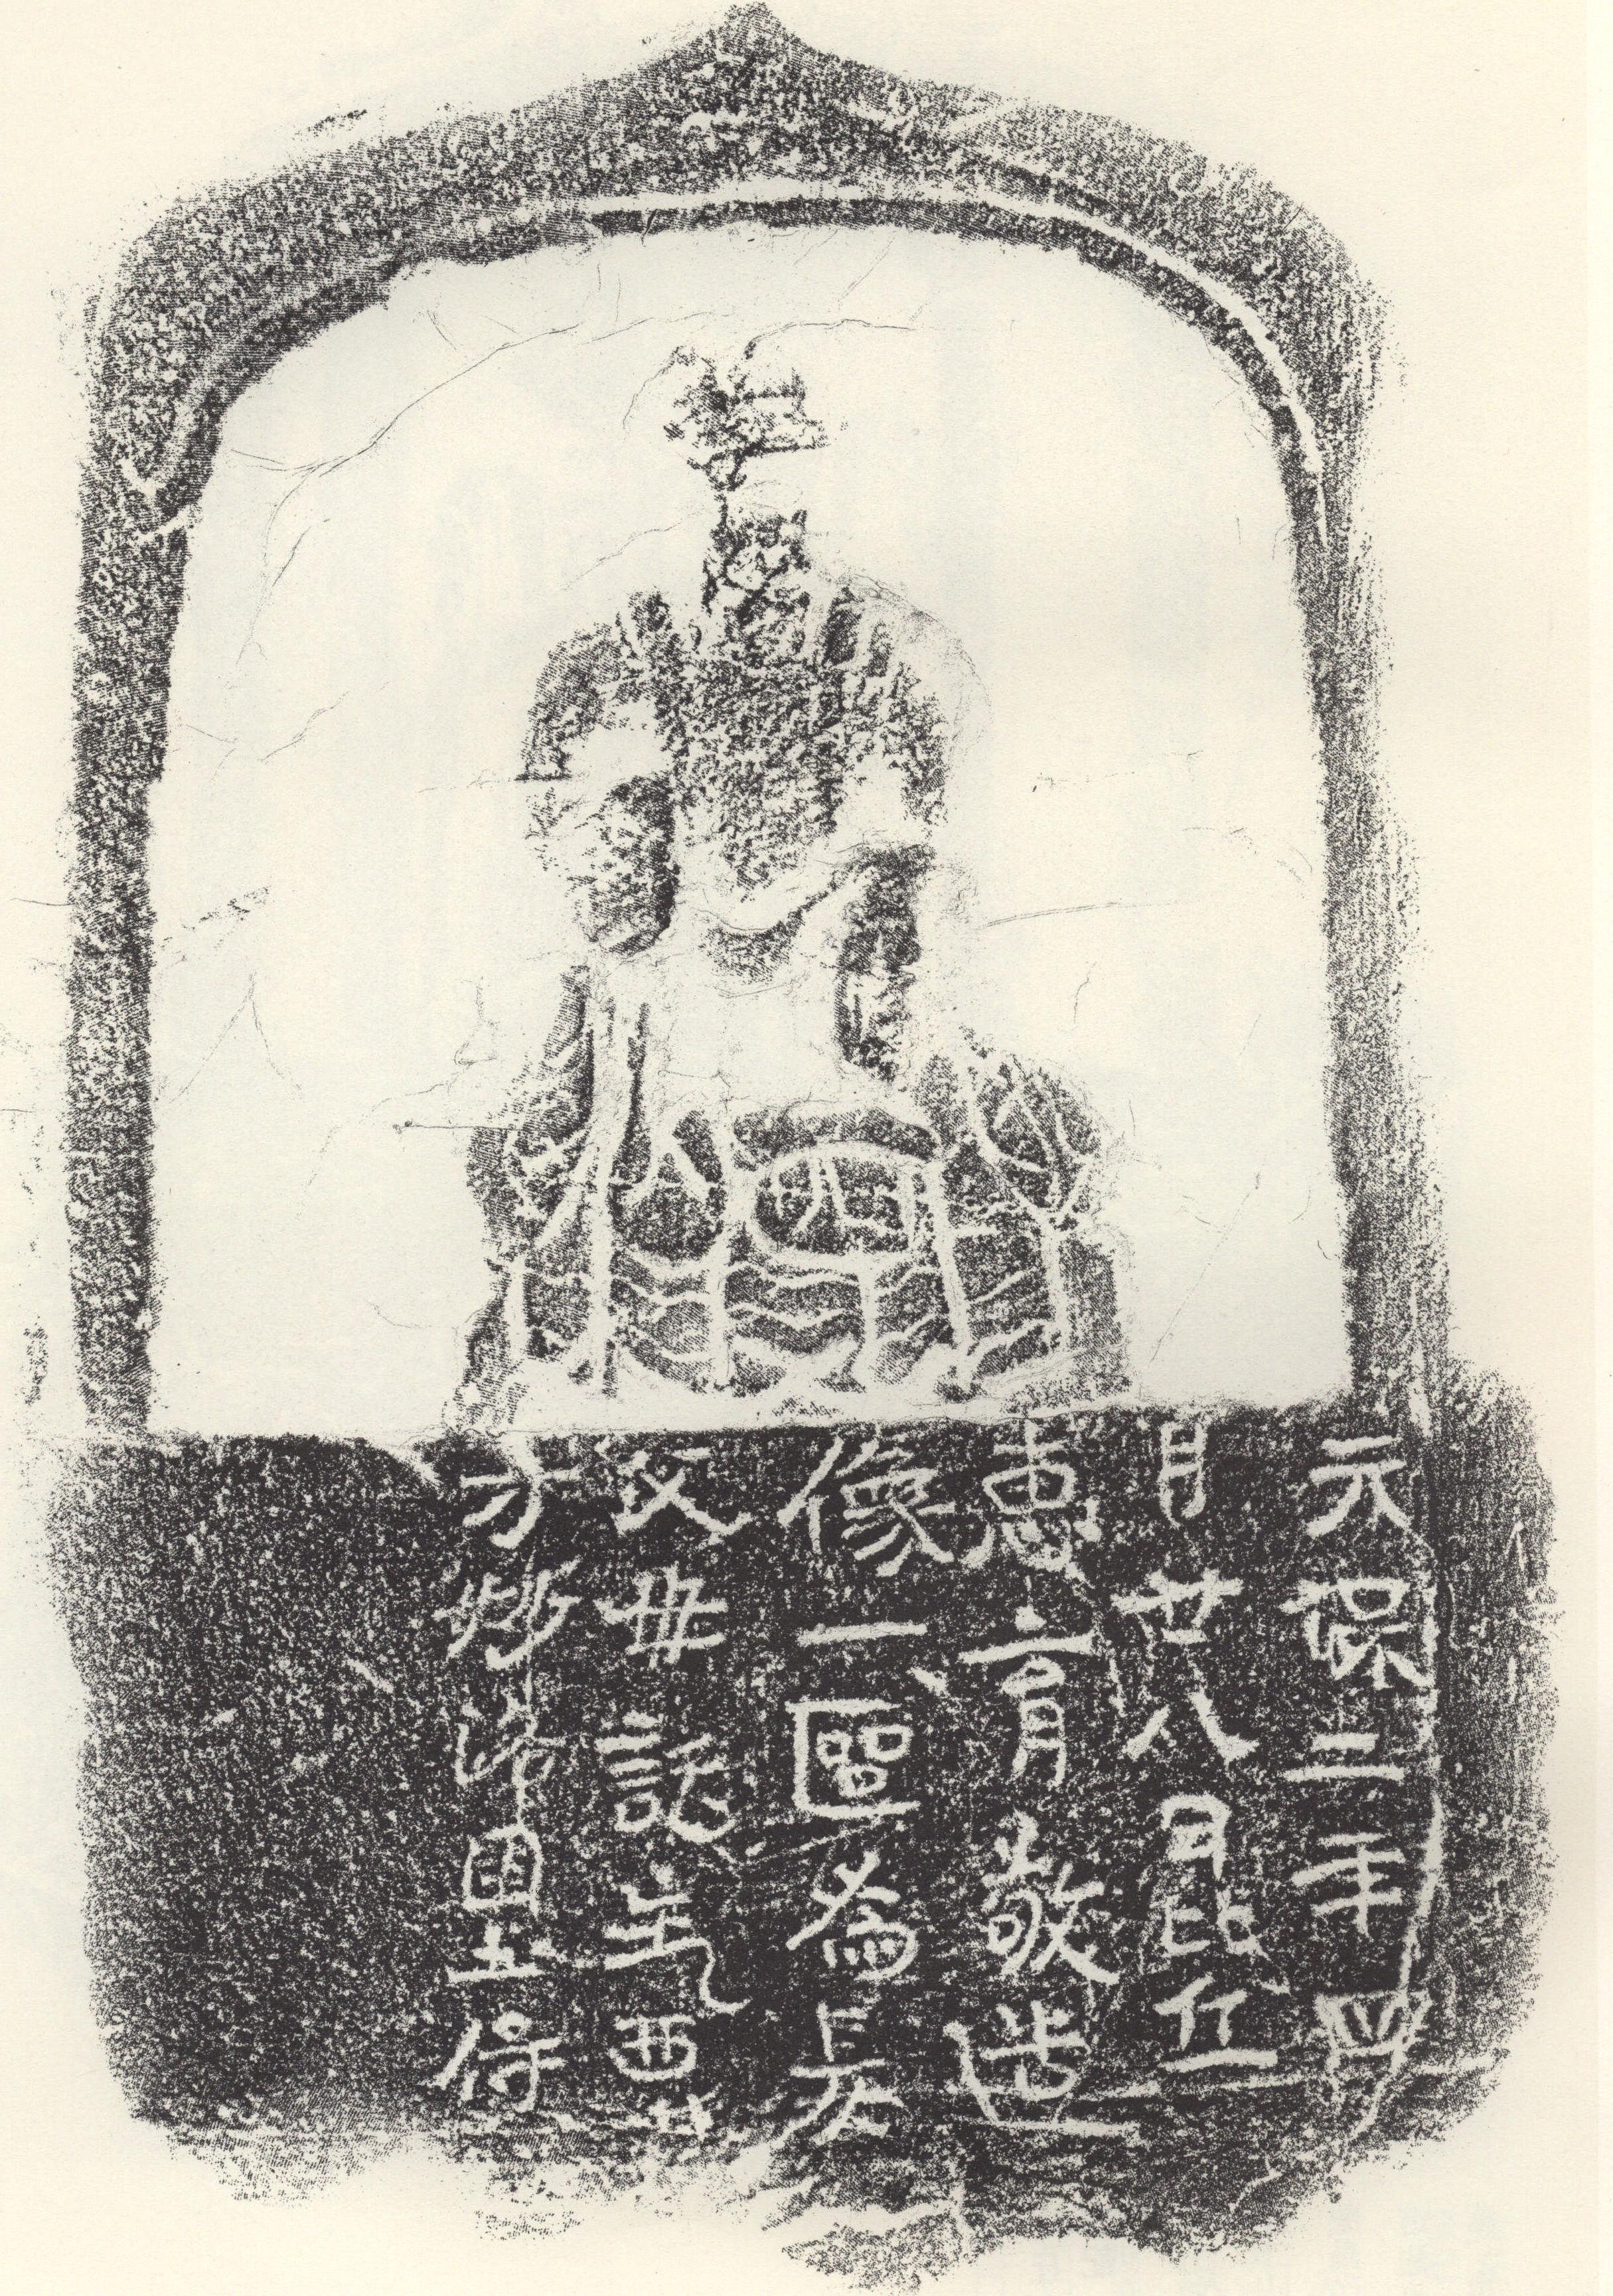 元二年四
月廿八日比丘
惠育敬造
像一區為
父母託生西
方妙洛國土侍